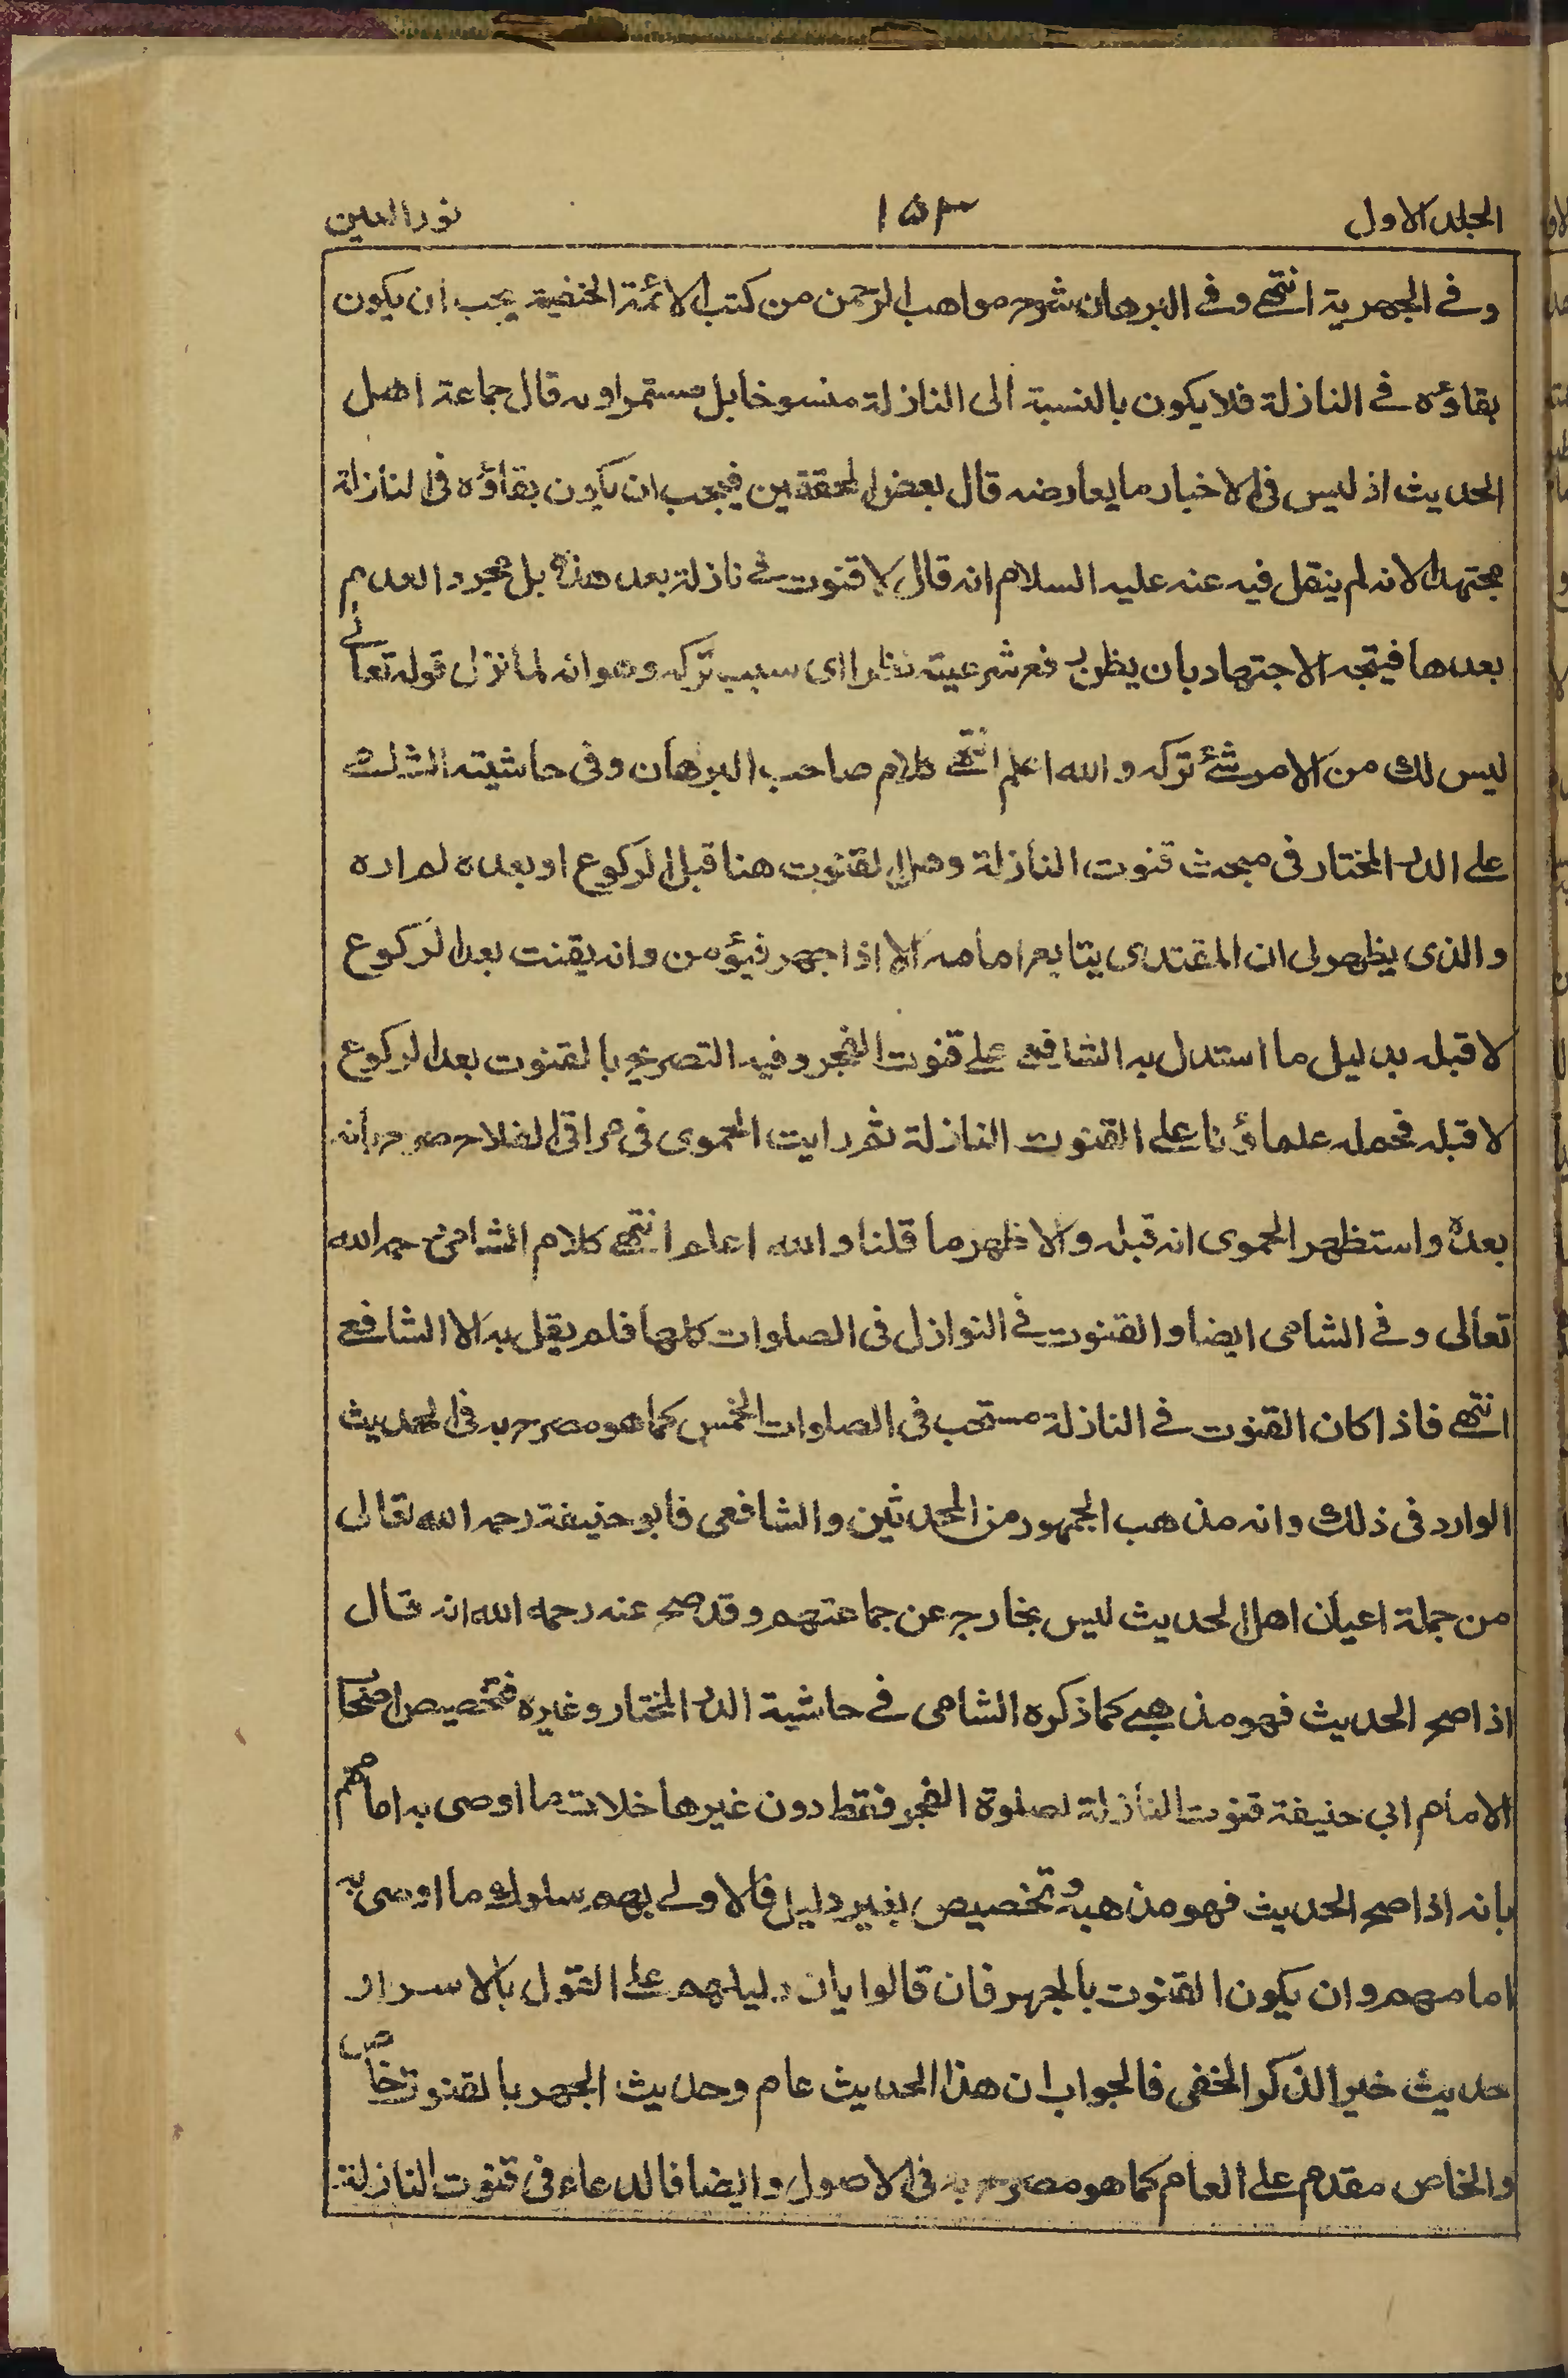 المجلد الاول ١٥٣ نور العين
وفي الجهرية انتهى وفي البرهان شرح مواهب الرحمن من كتب الائمة الحنفية يجب ان يكون
بقاؤه في النازلة فلا يكون بالنسبة الى النازلة منسوخا بل مستمرا وبه قال جماعة اهل
الحديث اذ ليس في الاخبار ما يعارضه قال بعض المحققين فيجب ان يكون بقاؤه في النازلة
مجتهدا لانه لم ينقل فيه عنه عليه السلام انه قال لا قنوت في نازلة بعد هذه بل مجرد العدم
بعدها فيتجه الاجتهاد بان يظن رفع شرعيته نظرا اى سبب تركه وهو انه لما نزل قوله تعالى
ليس لك من الامر شئ تركه والله اعلم انتهى كلام صاحب البرهان وفى حاشيته الشلبي
على الدر المختار فى مبحث قنوت النازلة وهل القنوت هنا قبل الركوع او بعده لم اره
والذى يظهر لى ان المقتدى يتابع امامه الا اذا جهر فيؤمن وانه يقنت بعد الركوع
لا قبله بدليل ما استدل به الشافعي على قنوت الفجر وفيه التصريح بالقنوت بعد الركوع
لا قبله فحمله علماؤنا على القنوت النازلة ثم رايت الحموى فى مراقى الفلاح صرح بانه
بعده واستظهر الحموى انه قبله والاظهر ما قلنا والله اعلم انتهى كلام الشامي رحمه الله
تعالى وفي الشامى ايضا والقنوت في النوازل فى الصلوات كلها فلم يقل به الا الشافعي
انتهى فاذا كان القنوت في النازلة مستحب فى الصلوات الخمس كما هو مصرح به فى الحديث
الوارد فى ذلك وانه مذهب الجمهور من المحدثين والشافعى فابو حنيفة رحمه الله تعالى
من جملة اعيان اهل الحديث ليس بخارج عن جماعتهم وقد صح عنه رحمه الله انه قال
اذا صح الحديث فهو مذهبي كما ذكره الشامى في حاشية الدر المختار وغيره فتخصيص اصحاب
الامام ابي حنيفة قنوت النازلة لصلوة الفجر فقط دون غيرها خلاف ما اوصى به امامهم
بانه اذا صح الحديث فهو مذهبه وتخصيص بغير دليل فالاولى بهم سلوك ما اوصى به
امامهم وان يكون القنوت بالجهر فان قالوا بان دليلهم على القول بالاسرار
حديث خير الذكر الخفى فالجواب ان هذا الحديث عام وحديث الجهر بالقنوت خاص
والخاص مقدم على العام كما هو مصرح به فى الاصول وايضا فالدعاء فى قنوت النازلة